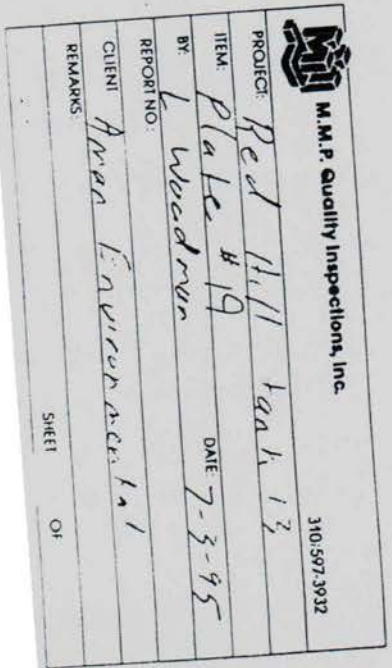 M.M.P. Quality Inspections, Inc. 310/597-3932
PROJECT: Red Hill tank 13
ITEM: Plate # 19
BY: L Woodmun DATE: 7-3-95
REPORT NO.:
CLIENT Environmental
REMARKS:
SHEET OF